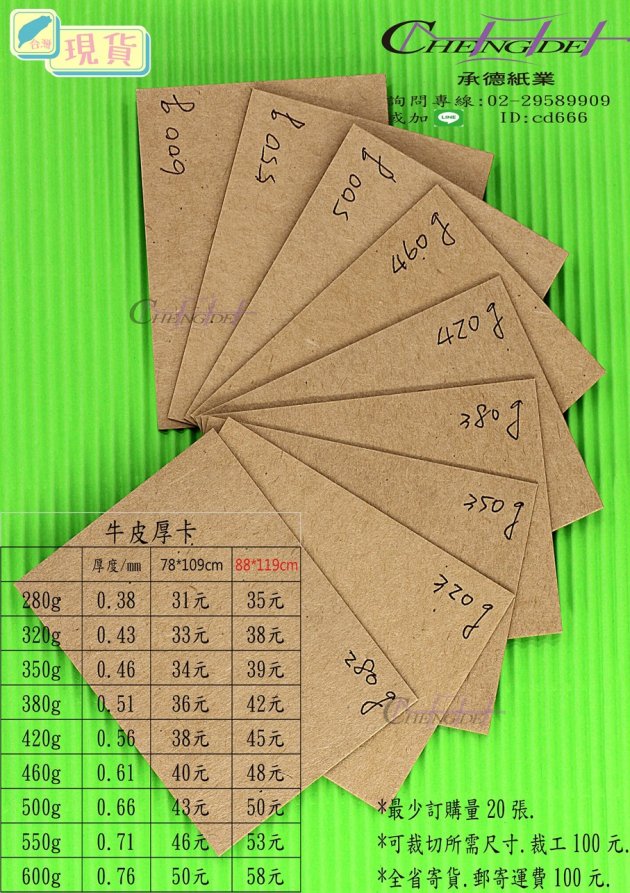 台灣
現貨
CHENGDE
承德紙業
詢問專線:02-29589909
或加 LINE ID:cd666
600g
550g
500g
460g
420g
380g
350g
320g
280g
CHENGDE
CHENGDE
牛皮厚卡
厚度/mm 78*109cm 88*119cm
280g 0.38 31元 35元
320g 0.43 33元 38元
350g 0.46 34元 39元
380g 0.51 36元 42元
420g 0.56 38元 45元
460g 0.61 40元 48元
500g 0.66 43元 50元
550g 0.71 46元 53元
600g 0.76 50元 58元
*最少訂購量20張.
*可裁切所需尺寸.裁工100元.
*全省寄貨.郵寄運費100元.